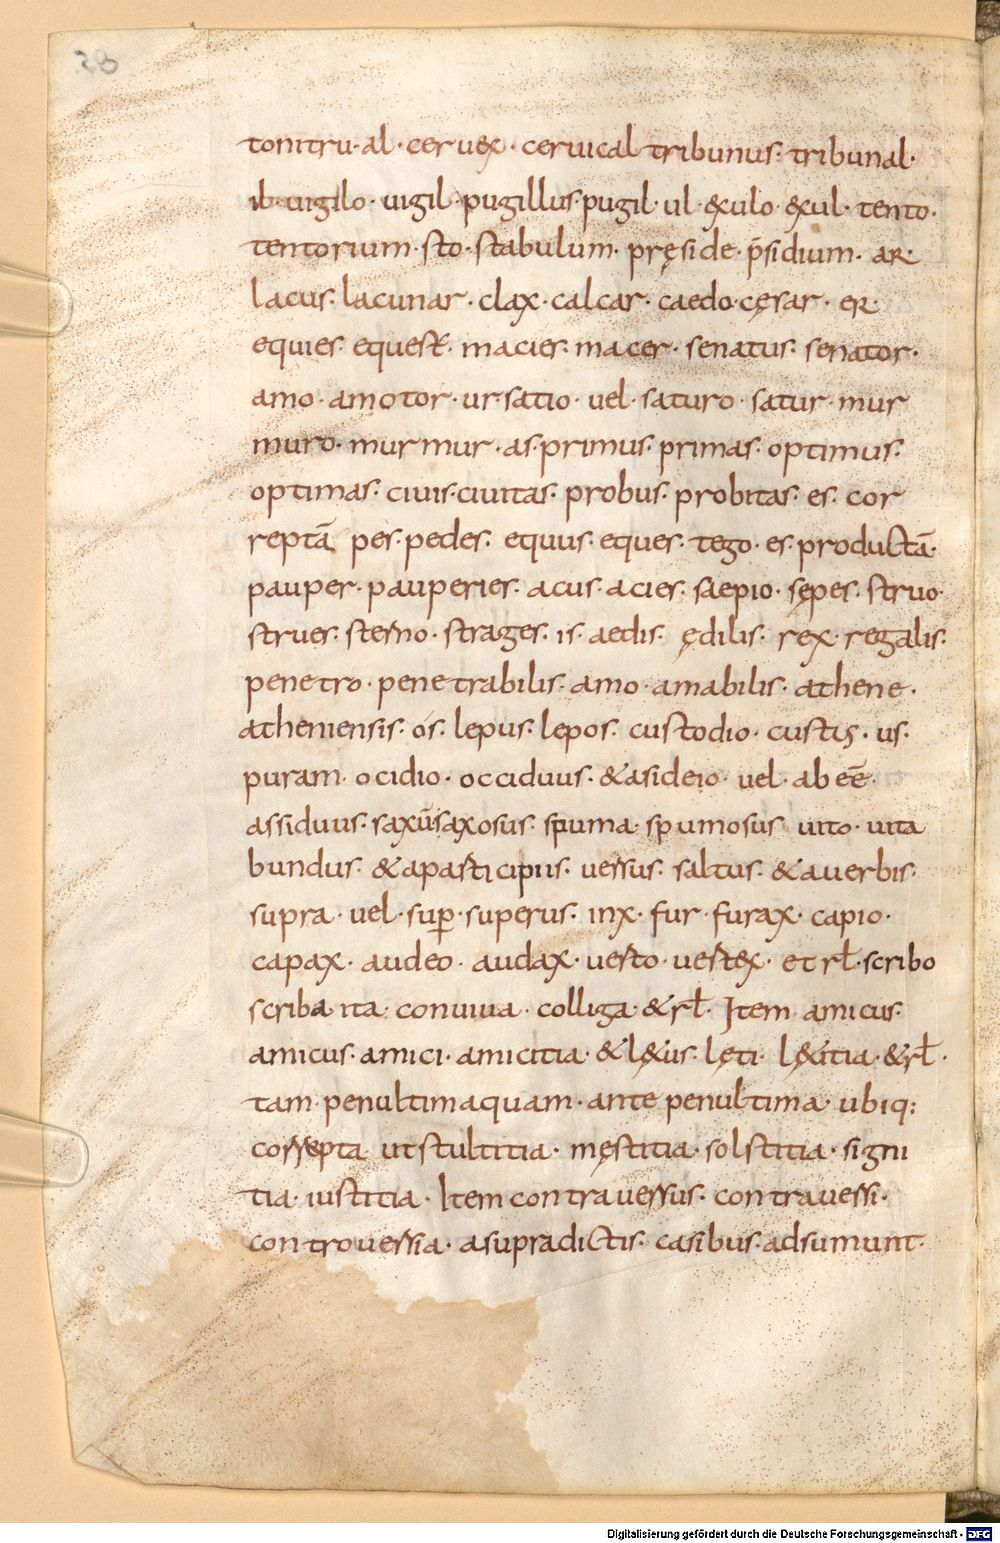 38
tonitru· al· ceruex· ceruical tribunus· tribunal·
il· uigilo· uigil· pugillus· pugil· ul· &xulo &xul· tento·
tentorium· sto· stabulum· pręside· p̄sidium· ar
lacus· lacunar· clax· calcar· caedo· cęsar· er
equies· equest̄· macies· macer· senatus· senator·
amo· amotor· ur satio· uel· saturo· satur· mur
muro· murmur· as· primus· primas· optimus·
optimas· ciuis· ciuitas· probus· probitas· es· cor
reptā pes· pedes· equus· eques· tego· es· productā·
pauper· pauperies· acus· acies· saepio· sępes· struo·
strues· sterno· strages· is· aedis· ędilis· rex· regalis·
penetro· penetrabilis· amo· amabilis· athene·
atheniensis· os· lepus· lepos· custodio· custis· us·
puram· ocidio· occiduus· &asideio· uel· ab eē·
assiduus· saxū saxosus· spuma· spumosus uito· uita
bundus· &aparticipiis· uersus· saltus· &auerbis·
supra· uel· sup̄· superus· inx· fur· furax· capio·
capax· audeo· audax· uerto· uertex· et rł· scribo
scriba ita· conuiua· colliga· &rł· Item amicus·
amicus· amici· amicitia· &lę&us· lęti· lę&itia· &rł·
tam· penultima quam· ante penultima· ubiq;
correpta ut stultitia· męstitia· solstitia· signi
tia· iustitia· Item contrauersus· contrauersi·
controuersia· a supradictis· casibus· adsumunt·
Digitalisierung gefördert durch die Deutsche Forschungsgemeinschaft - DFG